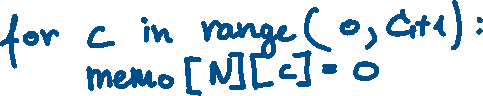 for c in range(0, C+1):
memo[N][c] = 0